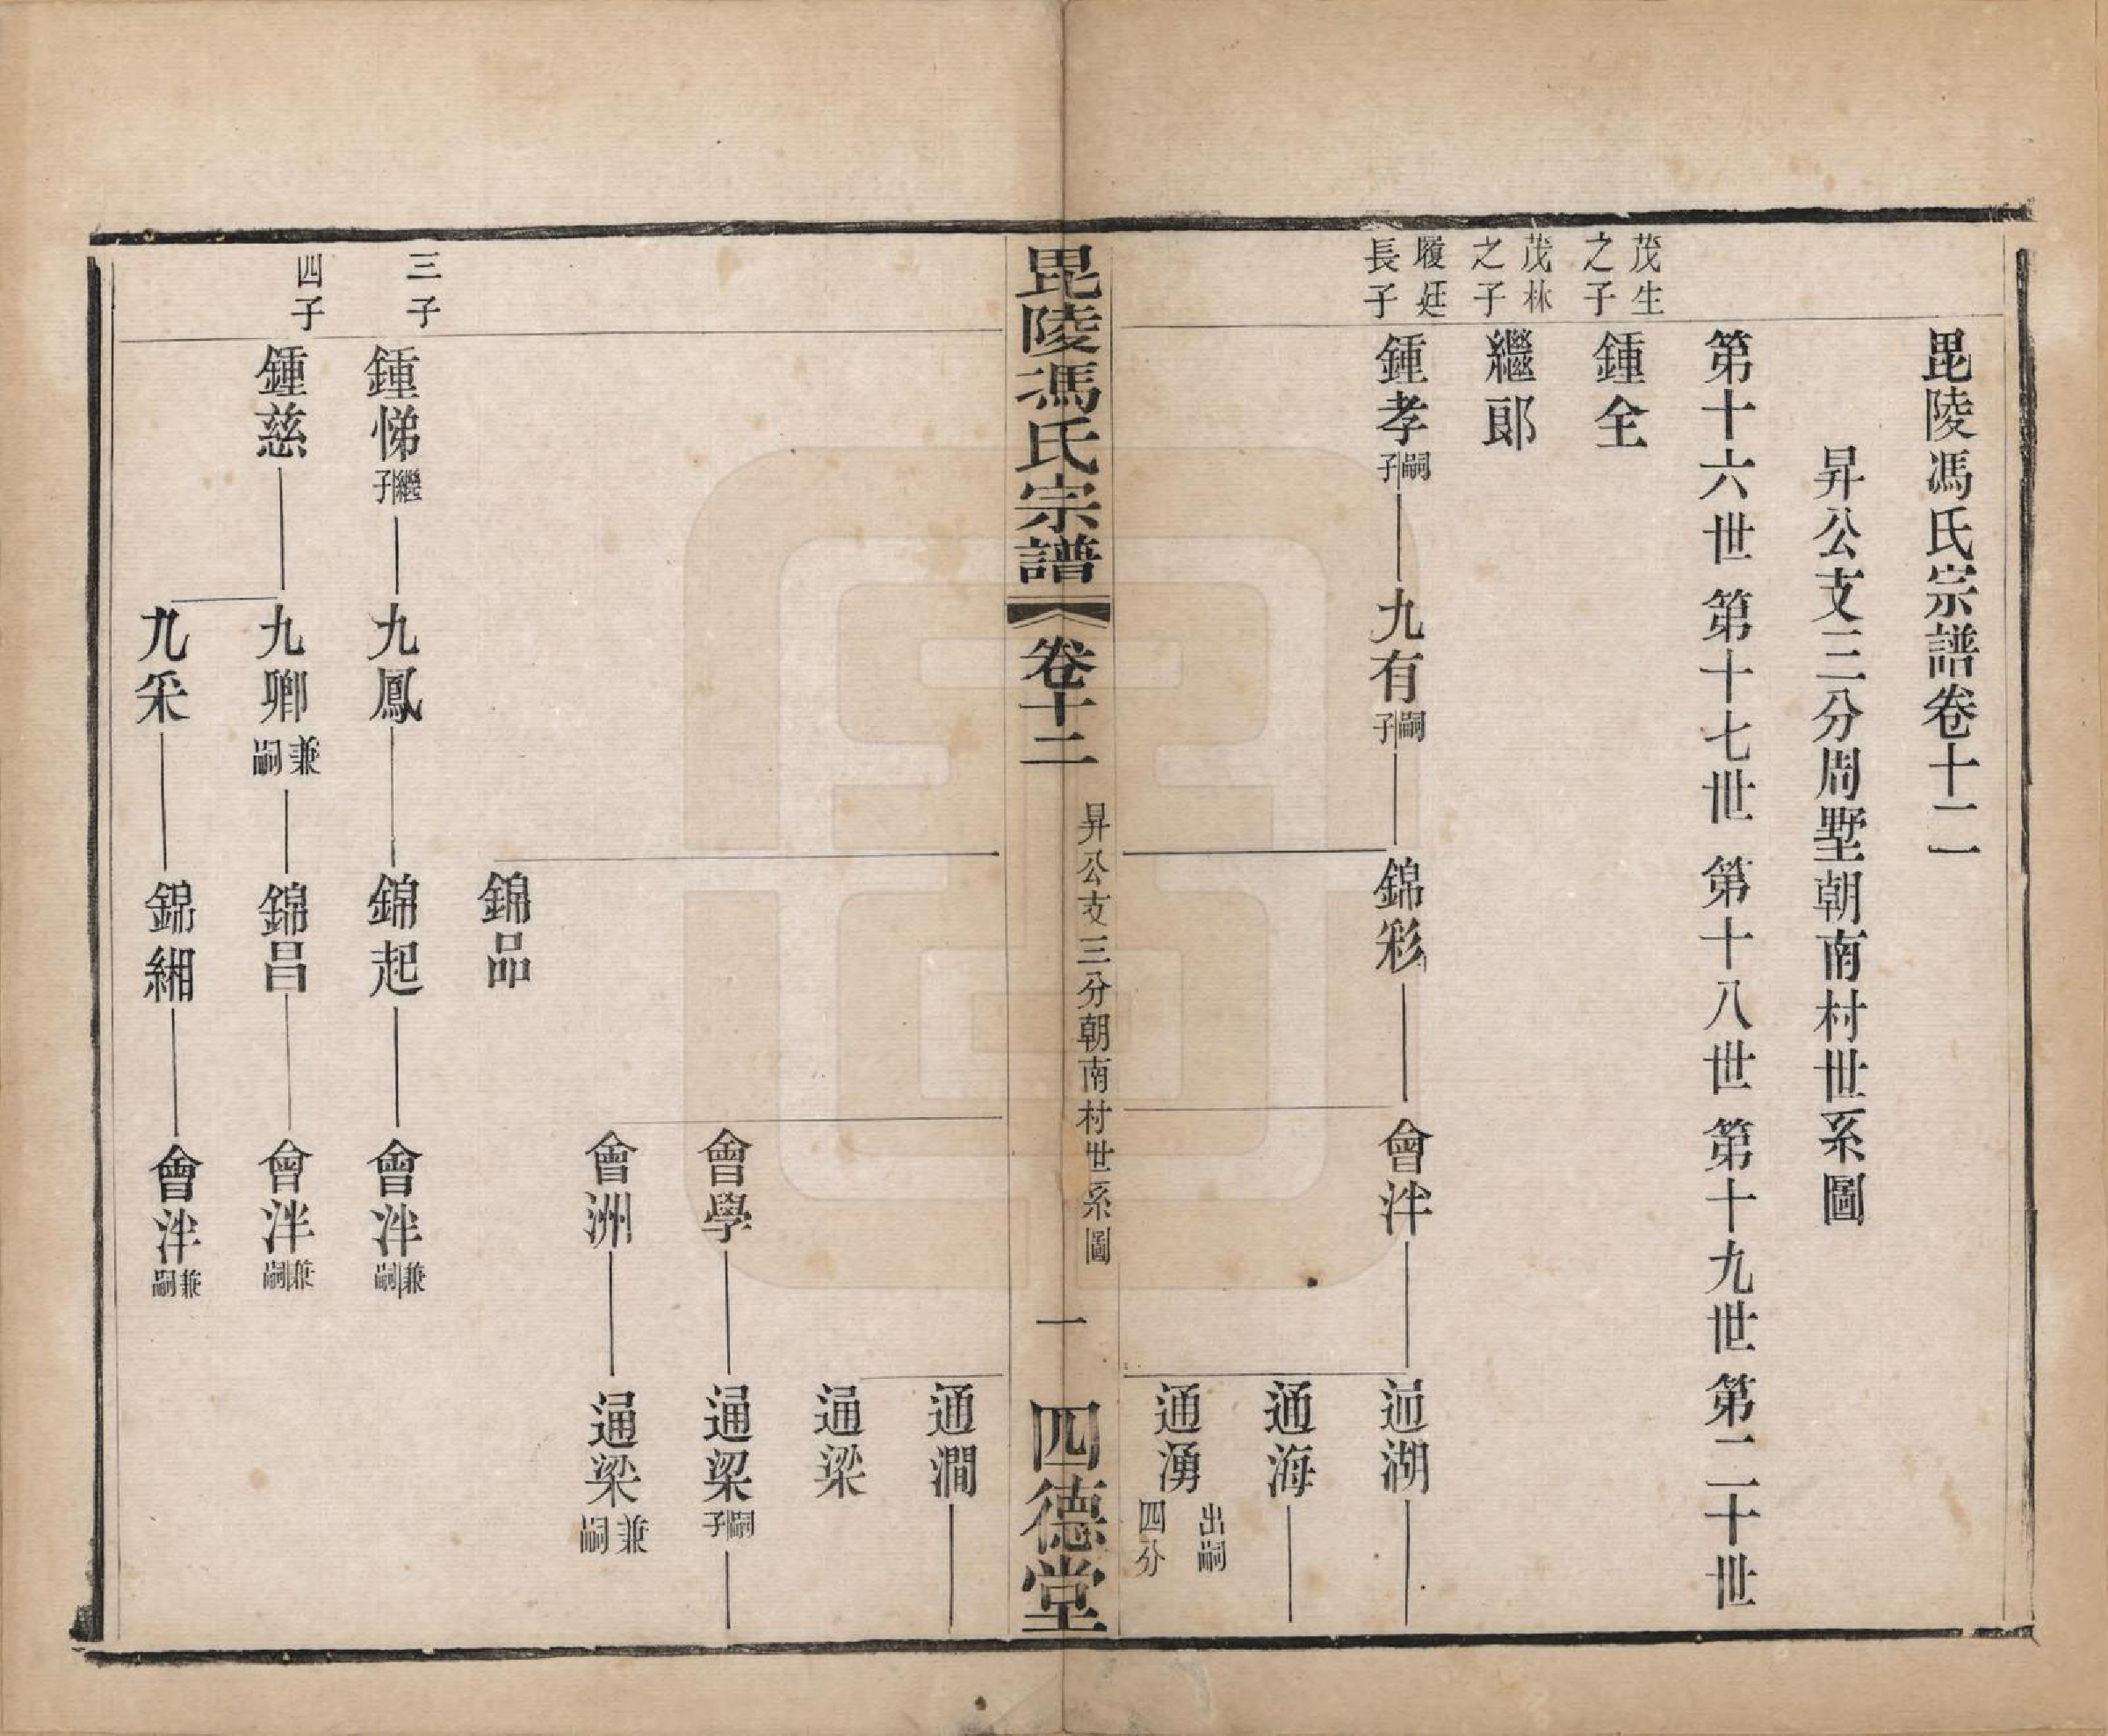 毘陵馮氏宗譜卷十二
昇公支三分周墅朝南村世系圖
第十六世 第十七世 第十八世 第十九世 第二十世
茂生之子 鍾全
茂林之子 繼郎
履廷長子 鍾孝 嗣子 九有 嗣子 錦彩 會泮 通湖
通海
通湧 出嗣四分
毘陵馮氏宗譜 卷十二 昇公支三分朝南村世系圖 一 四德堂
通澗
通梁
會學 通梁 嗣子
會洲 通梁 兼嗣
錦品
三子 鍾悌 繼子 九鳳 錦起 會泮 兼嗣
四子 鍾慈 九卿 兼嗣 錦昌 會泮 兼嗣
九采 錦緗 會泮 兼嗣